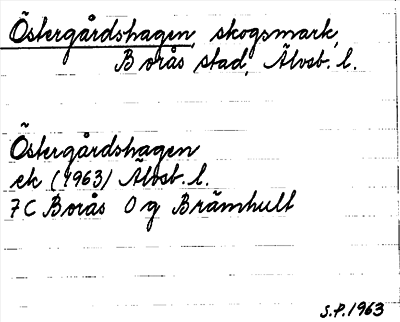 Östergårdshagen, skogsmark,
Borås stad, Älvsb. l.
Östergårdshagen
ek (1963) Älvsb. l.
7C Borås 0 g Brämhult
S.P. 1963